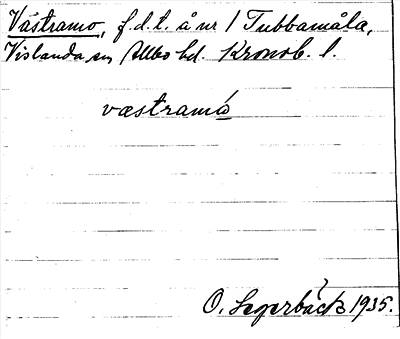 Västramo, f.d.t. å nr 1 Tubbamåla,
Vislanda sn Allbo hd. Kronob. l.
væstramó
O. Segerbäck 1935.